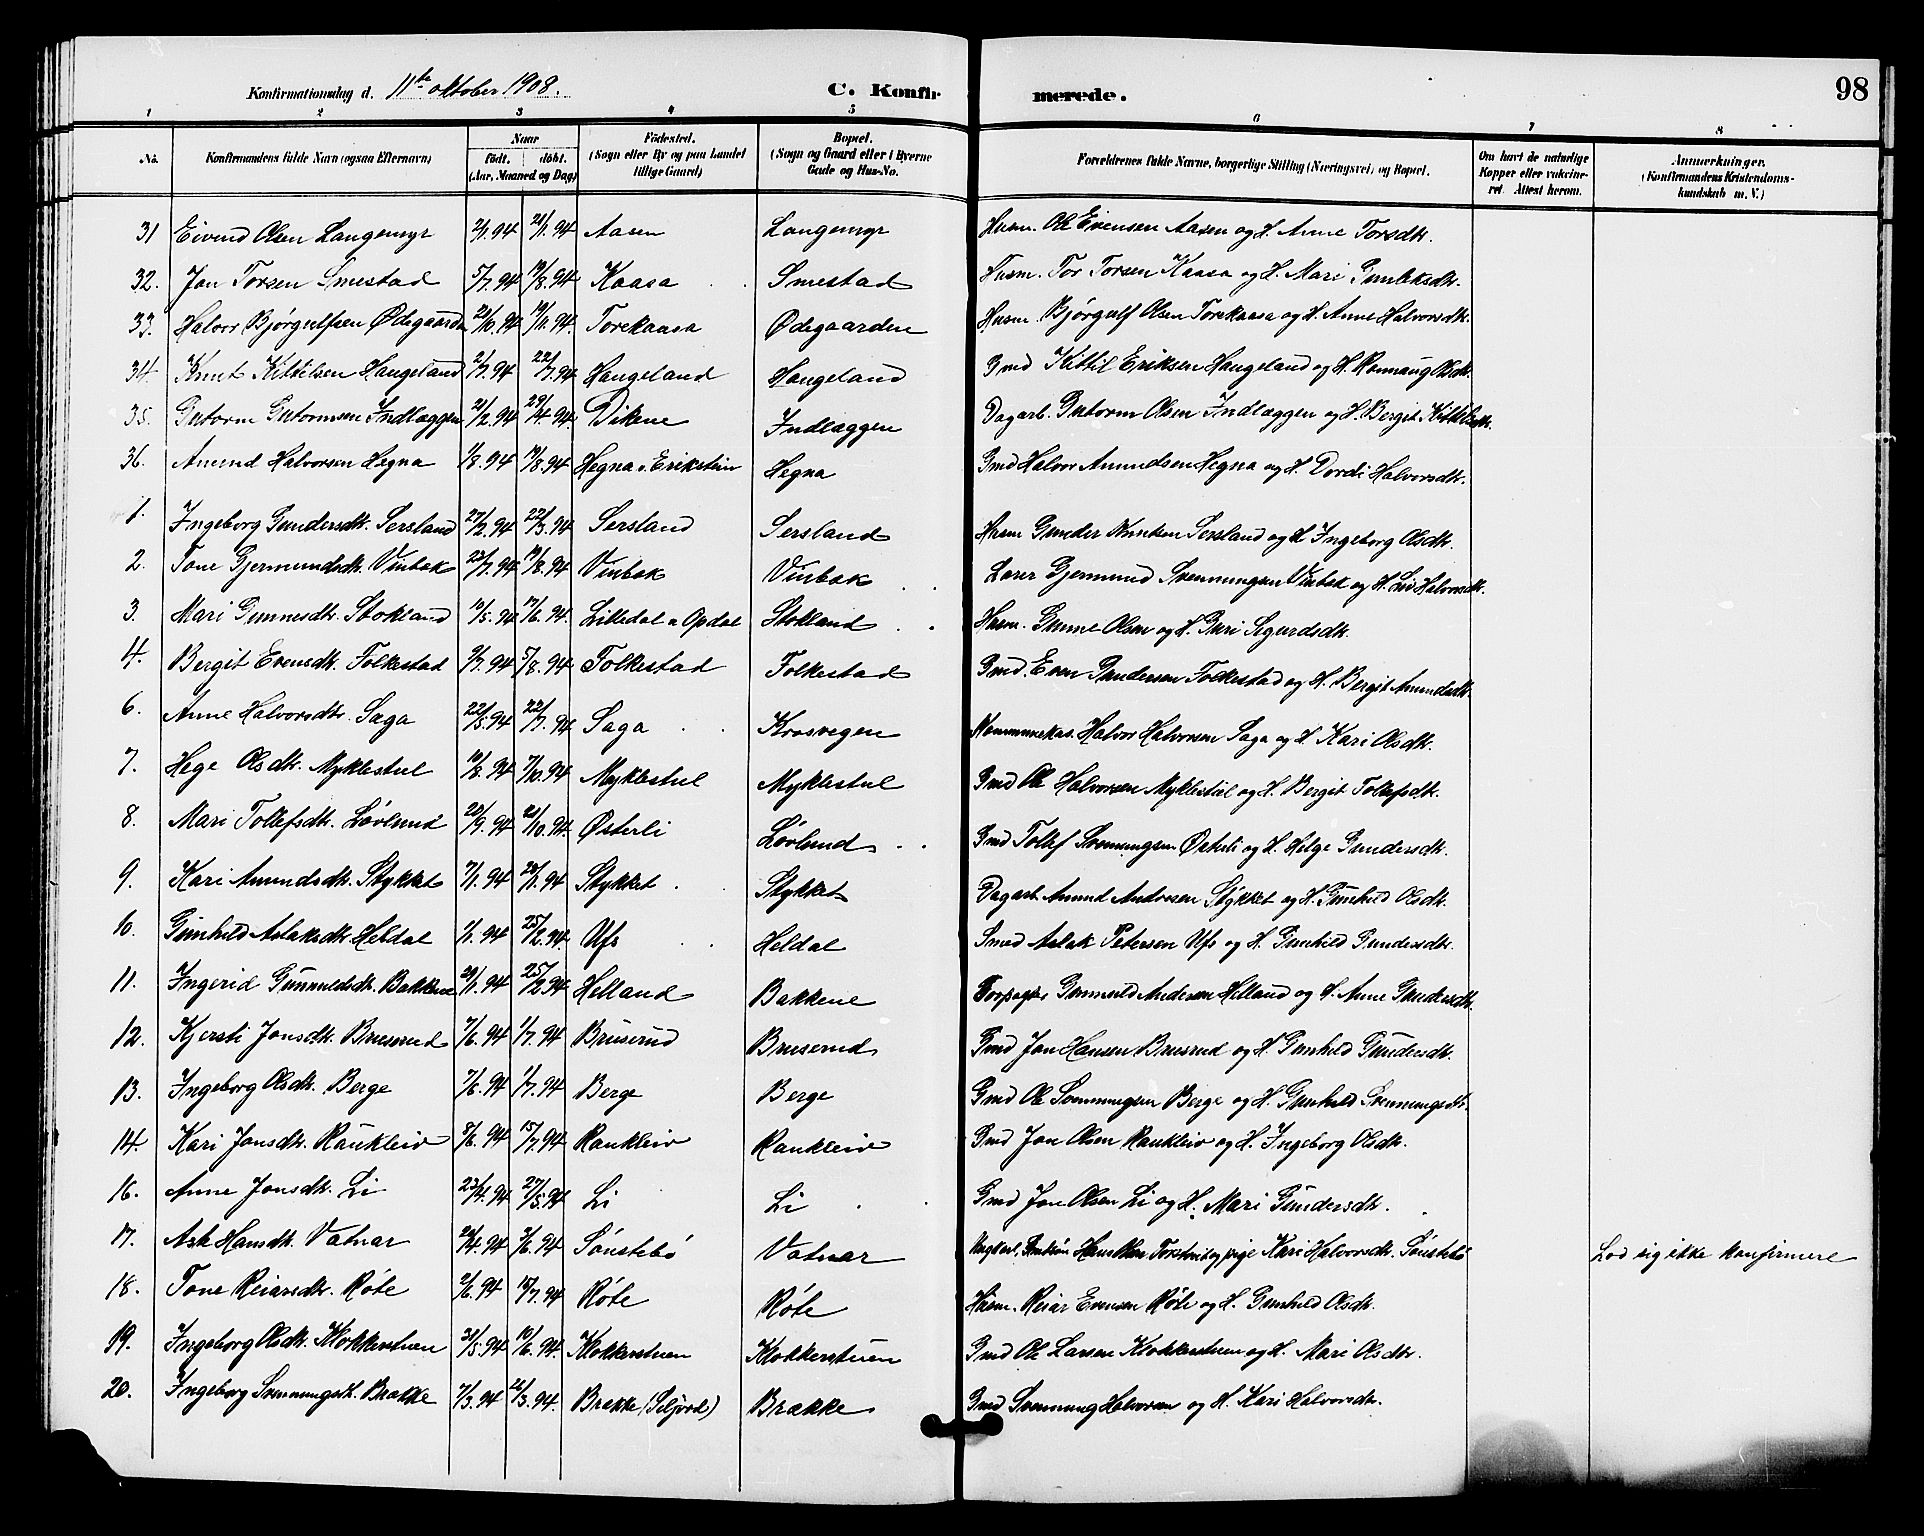 Konfirmationsdag d. 11te oktober 1908. C. Konfirmerede. 98
1 2 3 4 5 6 7 8
No. Konfirmandens fulde Navn (ogsaa Efternavn) Naar født. døbt. (Aar, Maaned og Dag) Födested. (Sogn eller By og paa Landet tillige Gaard) Bopæl. (Sogn og Gaard eller i Byerne Gade og Hus-No. Forældrenes fulde Navne, borgerlige Stilling (Næringsvei) og Bopæl. Om havt de naturlige Kopper eller vakcineret. Attest herom. Anmærkninger. (Konfirmandens Kristendomskundskab m. V.)
31 Eivind Olsen Langemyr 2/1.94 21/1.94 Aasen Langemyr Husm. Ole Evensen Aasen og H. Anne Torsdtr.
32. Jon Torsen Smestad 5/7.94 19/8.94 Kaasa Smestad Husm. Tor Torsen Kaasa og H. Mari Gunleksdtr.
33. Halvor Bjørgulfsen Ødegaarden 21/10.94 19/11.94. Torekaasa Ødegaarden Husm. Bjørgulf Olsen Torekaasa og H. Anne Halvorsdtr.
34. Knut Kittilsen Haugeland 2/7.94 22/7.94 Haugeland Haugeland Gmd Kittil Eriksen Haugeland og H. Rannaug Olsdtr.
35. Gutorm Gutormsen Indlæggen 21/2.94 29/4.94 Dikene Indlæggen Dagarb. Gutorm Olsen Indlæggen og H. Bergit Kittilsdtr.
36. Amund Halvorsen Hegna 1/8.94 19/8.94 Hegna u. Erikstein Hegna Gmd Halvor Amundsen Hegna og H. Dordi Halvorsdtr.
1. Ingeborg Gundersdtr. Sersland 27/2.94 22/3.94 Sersland Sersland Husm Gunder Knutsen Sersland og H Ingeborg Olsdtr.
2. Tone Gjermundsdtr. Vinbak 23/7.94 19/8.94 Vinbak Vinbak Lærer Gjermund Svenningsen Vinbak og H. Liv Halvorsdtr.
3. Mari Gunnesdtr. Stokland 12/5.94 17/6.94. Lilledal u Opdal Stokland Husm. Gunne Olsen og H. Guri Sigurdsdtr.
4. Bergit Evensdtr. Folkestad 9/7.94 5/8.94 Folkestad Folkestad Gmd. Even Gundersen Folkestad og H. Bergit Amundsdtr.
6. Anne Halvorsdtr. Saga 22/5.94 22/7.94 Saga Krosvegen Kommunekas. Halvor Halvorsen Saga og H. Kari Olsdtr.
7. Hege Olsdtr. Myklestul 19/8.94 7/10.94 Myklestul Myklestul Gmd Ole Halvorsen Myklestul og H. Bergit Tollefsdtr.
8. Mari Tollefsdtr. Lövlund 20/9.94 21/10.94. Østerli Lövlund Gmd Tollef Svenningsen Østerli og H. Helge Gundersdtr.
9. Kari Amundsdtr. Stykket 7/1.94 28/1.94 Stykket Stykket Dagarb. Amund Andresen Stykket og H. Gunhild Olsdtr.
10. Gunhild Aslaksdtr. Heldal 1/1.94 25/2.94 Ufs Heldal Smed Aslak Petersen Ufs og H. Gunhild Gundersdtr.
11. Ingerid Gunnuldsdtr. Bakkene 29/1.94 25/2.94 Helland Bakkene Forpagter Gunnuld Andersen Helland og H. Anne Gundersdtr.
12. Kjersti Jonsdtr. Bruserud 7/6.94 1/7.94 Bruserud Bruserud Gmd Jon Hansen Bruserud og H. Gunhild Gundersdtr.
13. Ingeborg Olsdtr. Berge 7/6.94 1/7.94 Berge Berge Gmd Ole Svenningsen Berge og H. Gunhild Svenningsdtr.
14. Kari Jonsdtr. Raukleiv 8/6.94 15/7.94 Raukleiv Raukleiv Gmd Jon Olsen Raukleiv og H. Ingeborg Olsdtr.
16. Anne Jonsdtr. Li 23/4.94 27/5.94 Li Li Gmd Jon Olsen Li og H. Mari Gundersdtr.
17. Ask Hansdtr. Vatnar 20/4.94 3/6.94 Sönstebö Vatnar Ungkarl, Hans Olsen og pige Kari Halvorsdtr. Sönstebö Lod sig ikke konfirmere
18. Tone Reiarsdtr. Röte 2/6.94 15/7.94 Röte Röte Husm. Reiar Evensen Röte og H. Gunhild Olsdtr.
19. Ingeborg Olsdtr. Klokkerstuen 21/5.94 10/6.94. Klokkerstuen Klokkerstuen Gmd Ole Larsen Klokkerstuen og H. Mari Olsdtr.
20. Ingeborg Svenningsdt. Brække 7/3.94 26/3.94. Brække (Seljord) Brække Gmd Svenning Halvorsen og H. Kari Halvorsdtr.